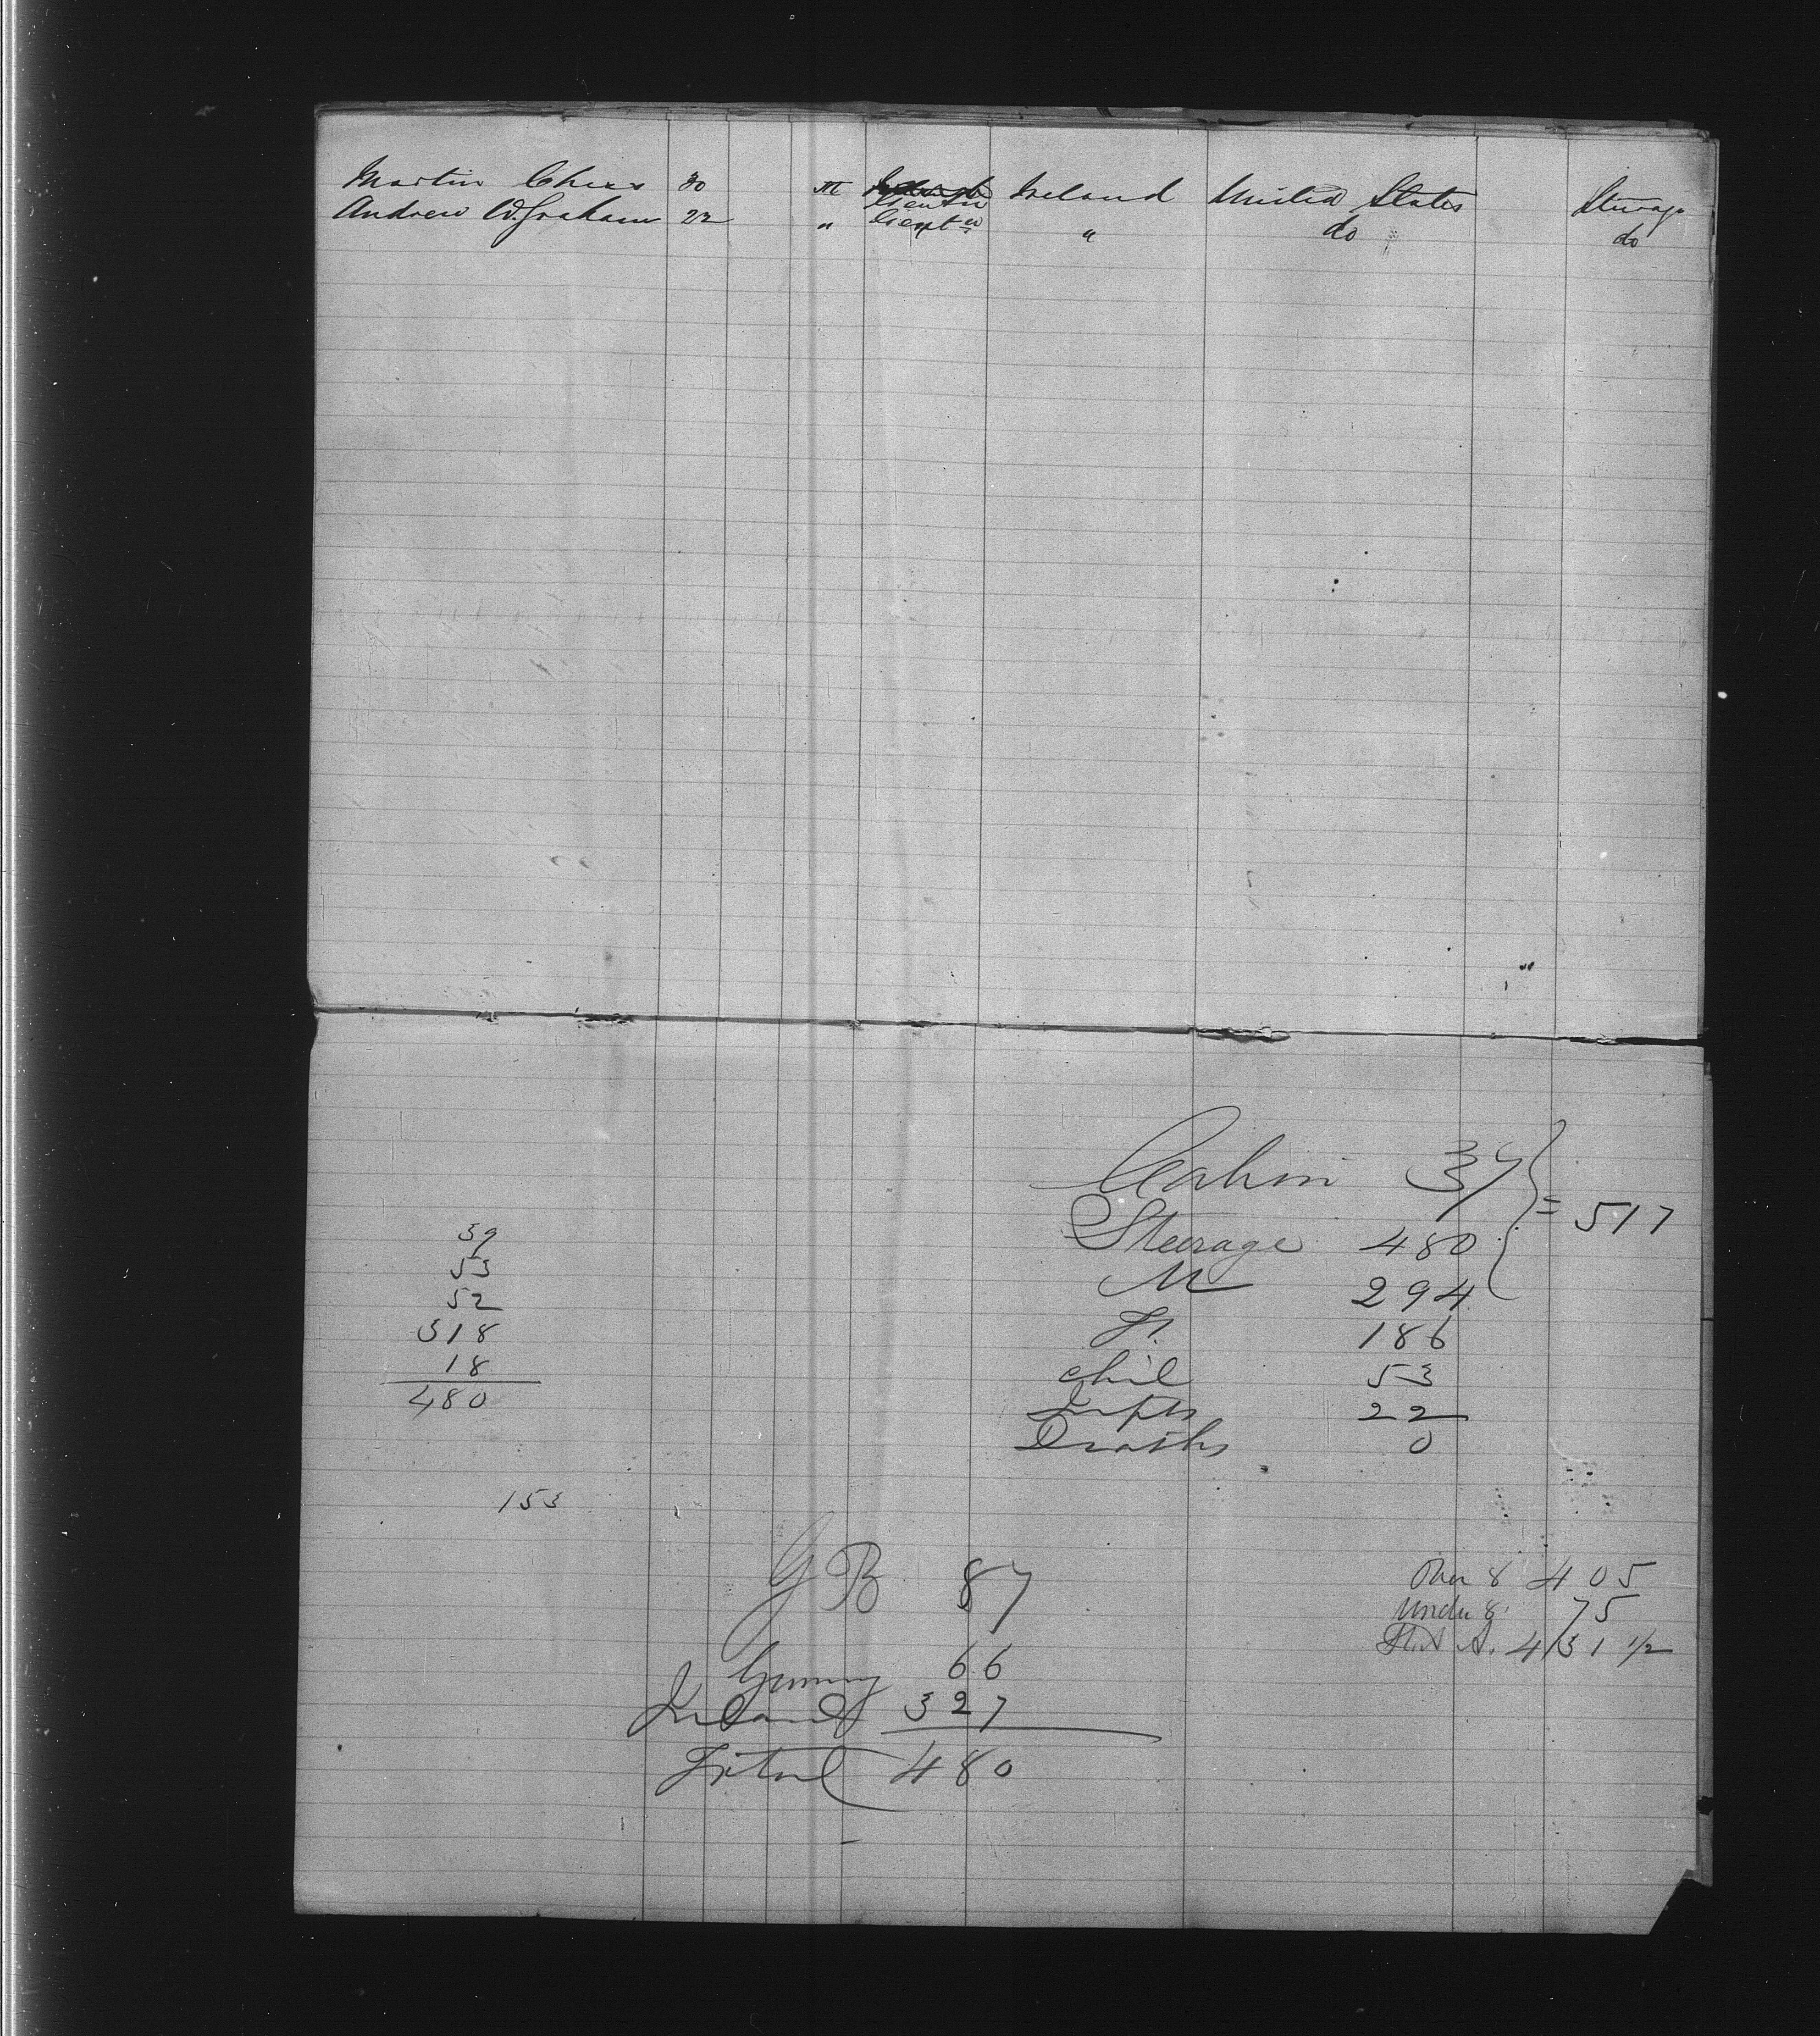 Martin 30 M Gentn Ireland United States Steerage
Andrew W Graham 22 " Gentn " do do
Cabin 37 } = 517
Steerage 480
M 294
F. 186
chil 53
Infts 22
Deaths 0
39
53
52
318
18
480
153
GB 87
Germny 66
Ireland 327
Total 480
Over 8 405
Under 8 75
Stat A. 431 1/2